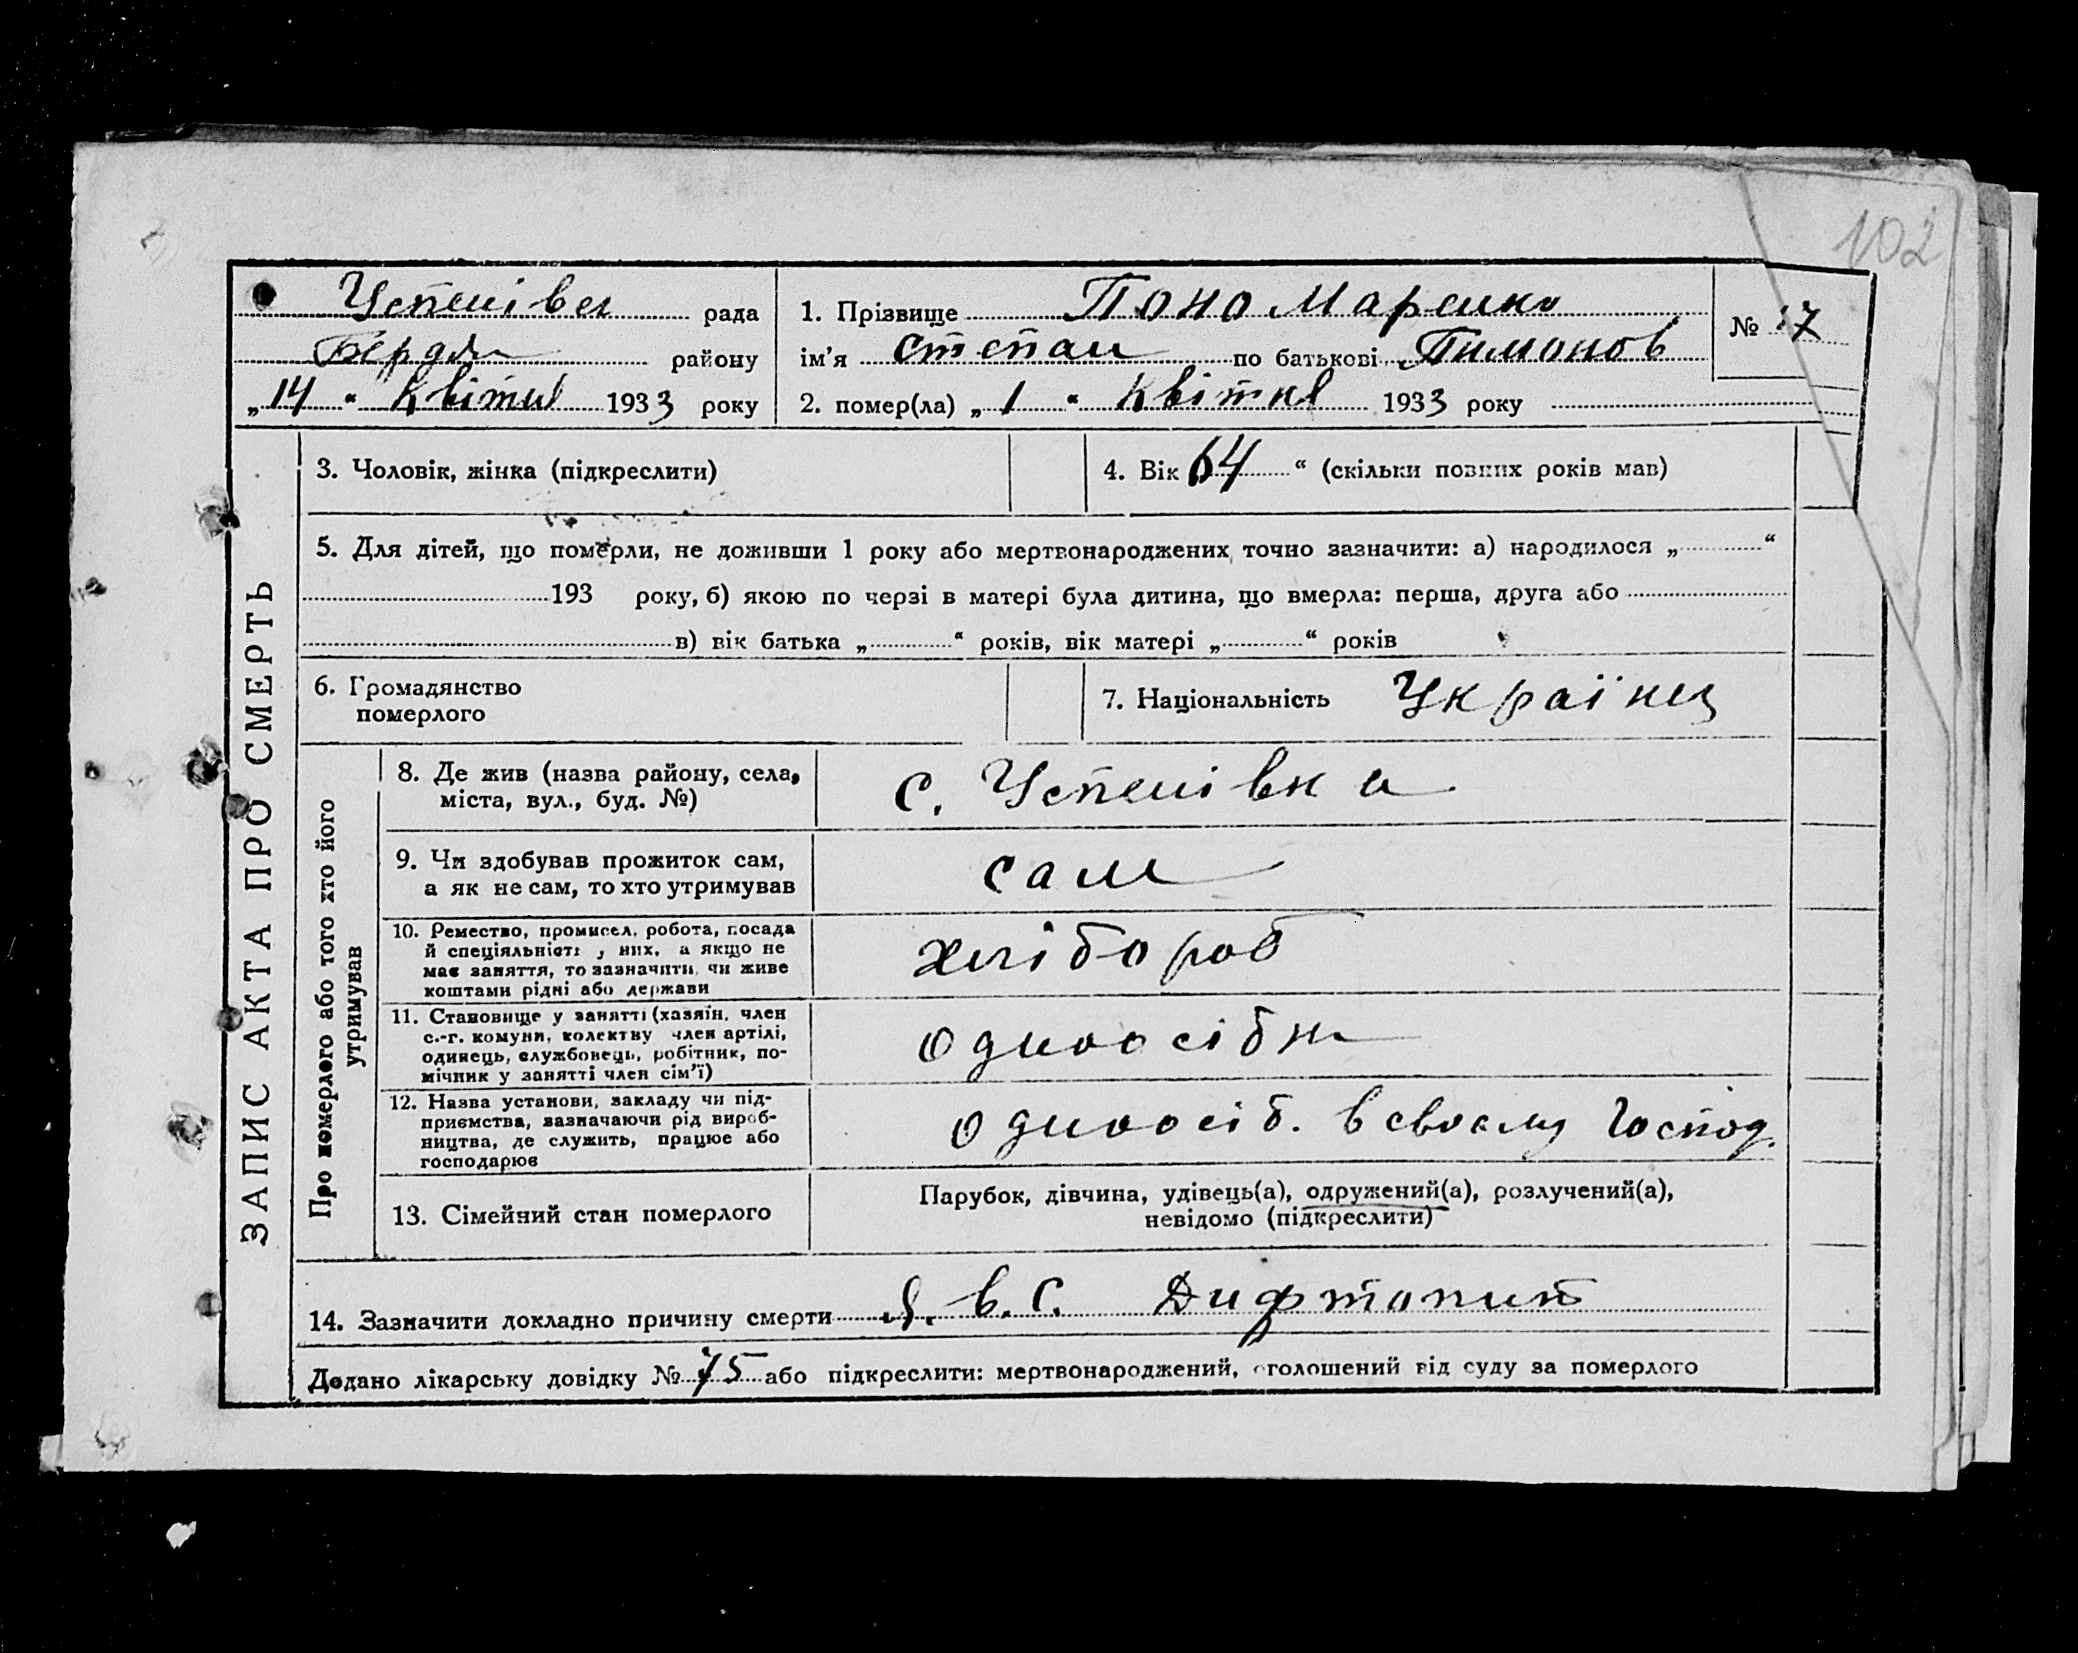 102
Успенівск рада
Бердян району
„ 14 “ Квітня 1933 року
1. Прізвище Пономаренко
ім’я Степан по батькові Тимонов
2. помер(ла) „ 1 “ Квітня 1933 року
№ 17
ЗАПИС АКТА ПРО СМЕРТЬ
3. Чоловік, жінка (підкреслити)
4. Вік 64 “ (скільки повних років мав)
5. Для дітей, що померли, не доживши 1 року або мертвонароджених точно зазначити: а) народилося „ “
193 року, б) якою по черзі в матері була дитина, що вмерла: перша, друга або
в) вік батька „ “ років, вік матері „ “ років
6. Громадянство
померлого
7. Національність Українец
Про померлого або того хто його
утримував
8. Де жив (назва району, села,
міста, вул., буд. №)
с. Успенівка
9. Чи здобував прожиток сам,
а як не сам, то хто утримував
сам
10. Ремество, промисел, робота, посада
й спеціяльність у них, а якщо не
має заняття, то зазначити, чи живе
коштами рідні або держави
хлібороб
11. Становище у занятті (хазяїн, член
с.-г. комуни, колективу член артілі,
одинець, службовець, робітник, по-
мічник у занятті член сім’ї)
одноосібн
12. Назва установи, закладу чи під-
приємства, зазначаючи рід вироб-
ництва, де служить, працює або
господарює
одноосіб. в своєму господ.
13. Сімейний стан померлого
Парубок, дівчина, удівець(а), одружений(а), розлучений(а),
невідомо (підкреслити)
14. Зазначити докладно причину смерти в. с.
Додано лікарську довідку № 75 або підкреслити: мертвонароджений, оголошений від суду за померлого